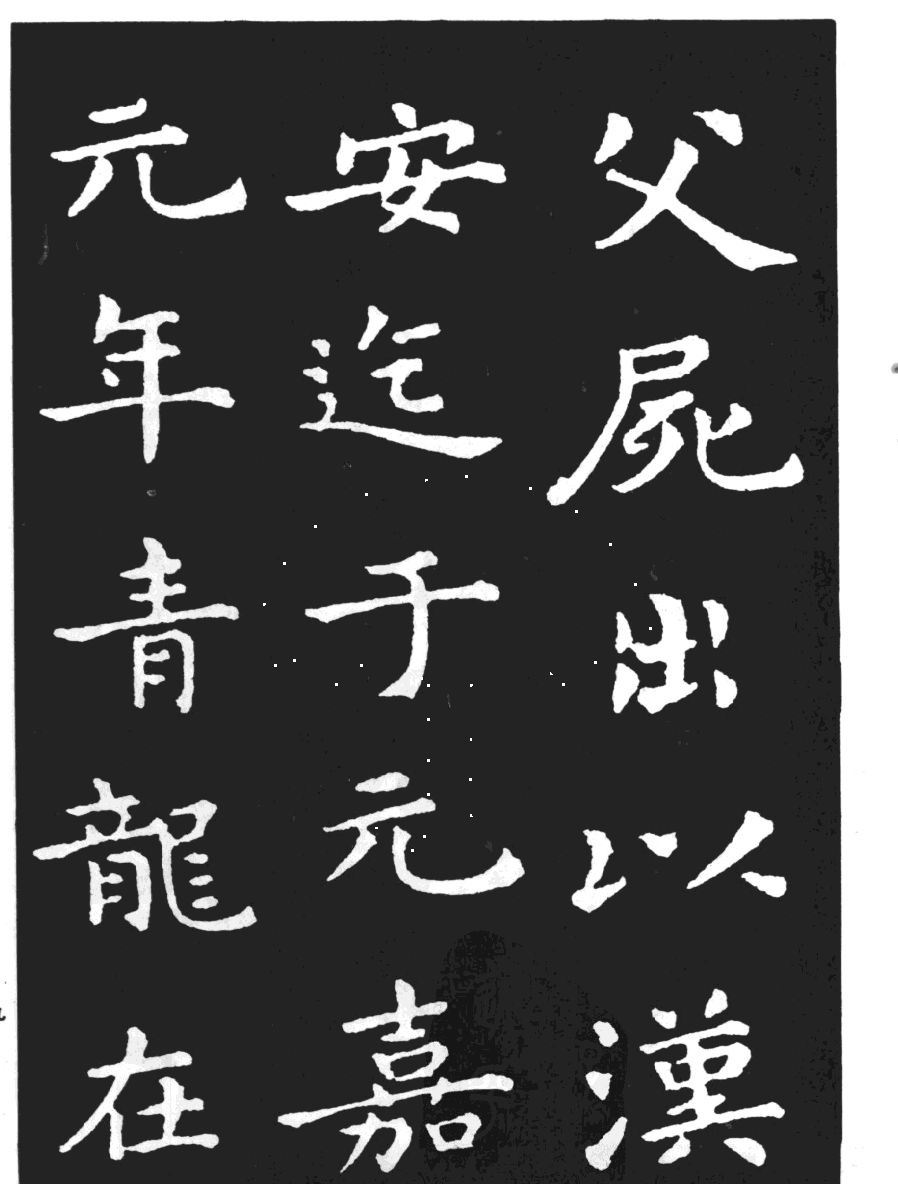 父屍出以漢
安迄于元嘉
元年青龍在